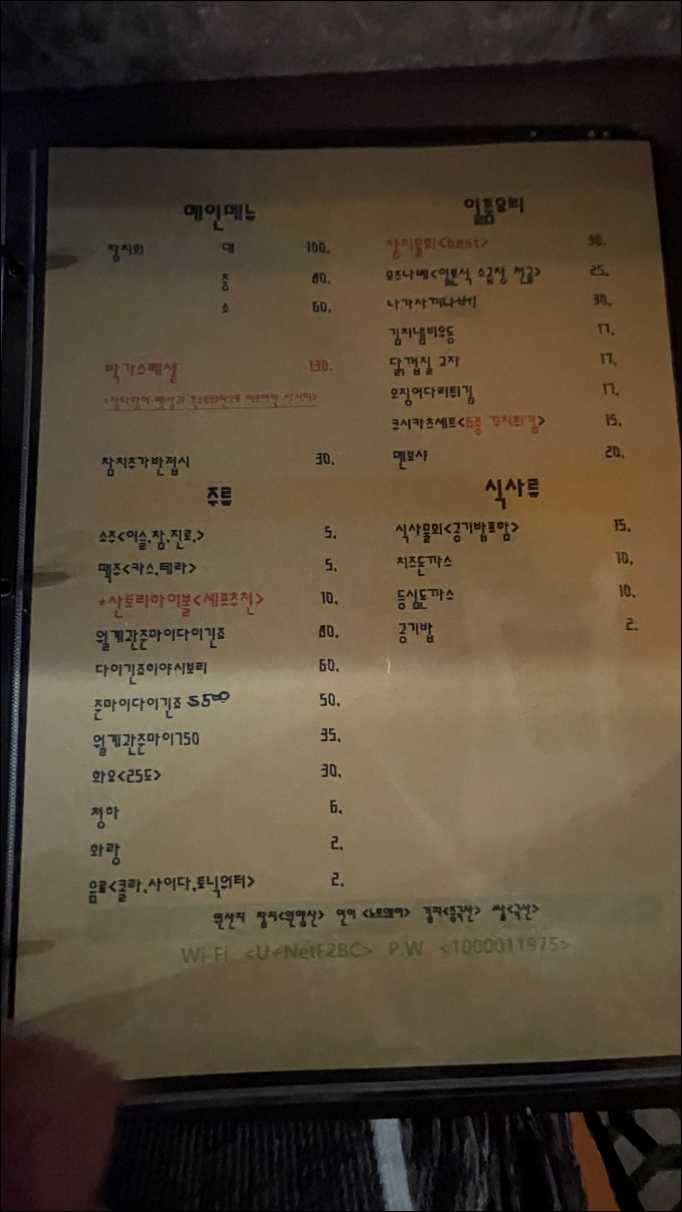 메인메뉴
참치회 대 100.
중 80.
소 60.
박가스페셜 130.
참치추가반접시 30.
주류
소주<이슬.참.진로.> 5.
맥주<카스.테라> 5.
*산토리하이볼<셰프추천> 10.
월계관준마이다이긴죠 80.
다이긴죠히야시보리 60.
준마이다이긴죠 50.
월계관준마이750 35.
화요<25도> 30.
청하 6.
화랑 2.
음료<콜라.사이다.토닉워터> 2.
일품요리
참치물회<best> 30.
모츠나베<일본식 소곱창 전골> 25.
나가사끼나베 30.
김치냄비우동 17.
닭껍질 교자 17.
오징어다리튀김 17.
쿠시카츠세트<6종 꼬치튀김> 15.
멘보샤 20.
식사류
식사물회<공기밥포함> 15.
치즈돈까스 10.
등심돈까스 10.
공기밥 2.
원산지 참치<원양산> 연어 <노르웨이> 김치<중국산> 쌀<국산>
Wi-Fi <U+NetF2BC> P.W <1000011975>